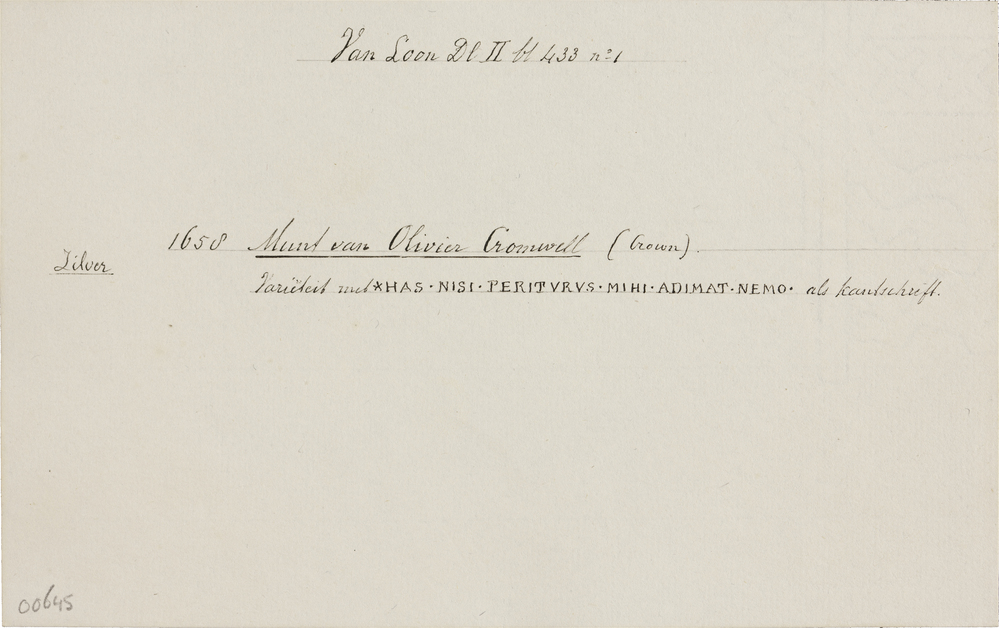 Van Loon Dl II bl 433 nº 1
1658 Munt van Olivier Cromwell (Crown).
Zilver
Variëteit met *HAS·NISI·PERITVRVS·MIHI·ADIMAT·NEMO· als kantschrift.
00645